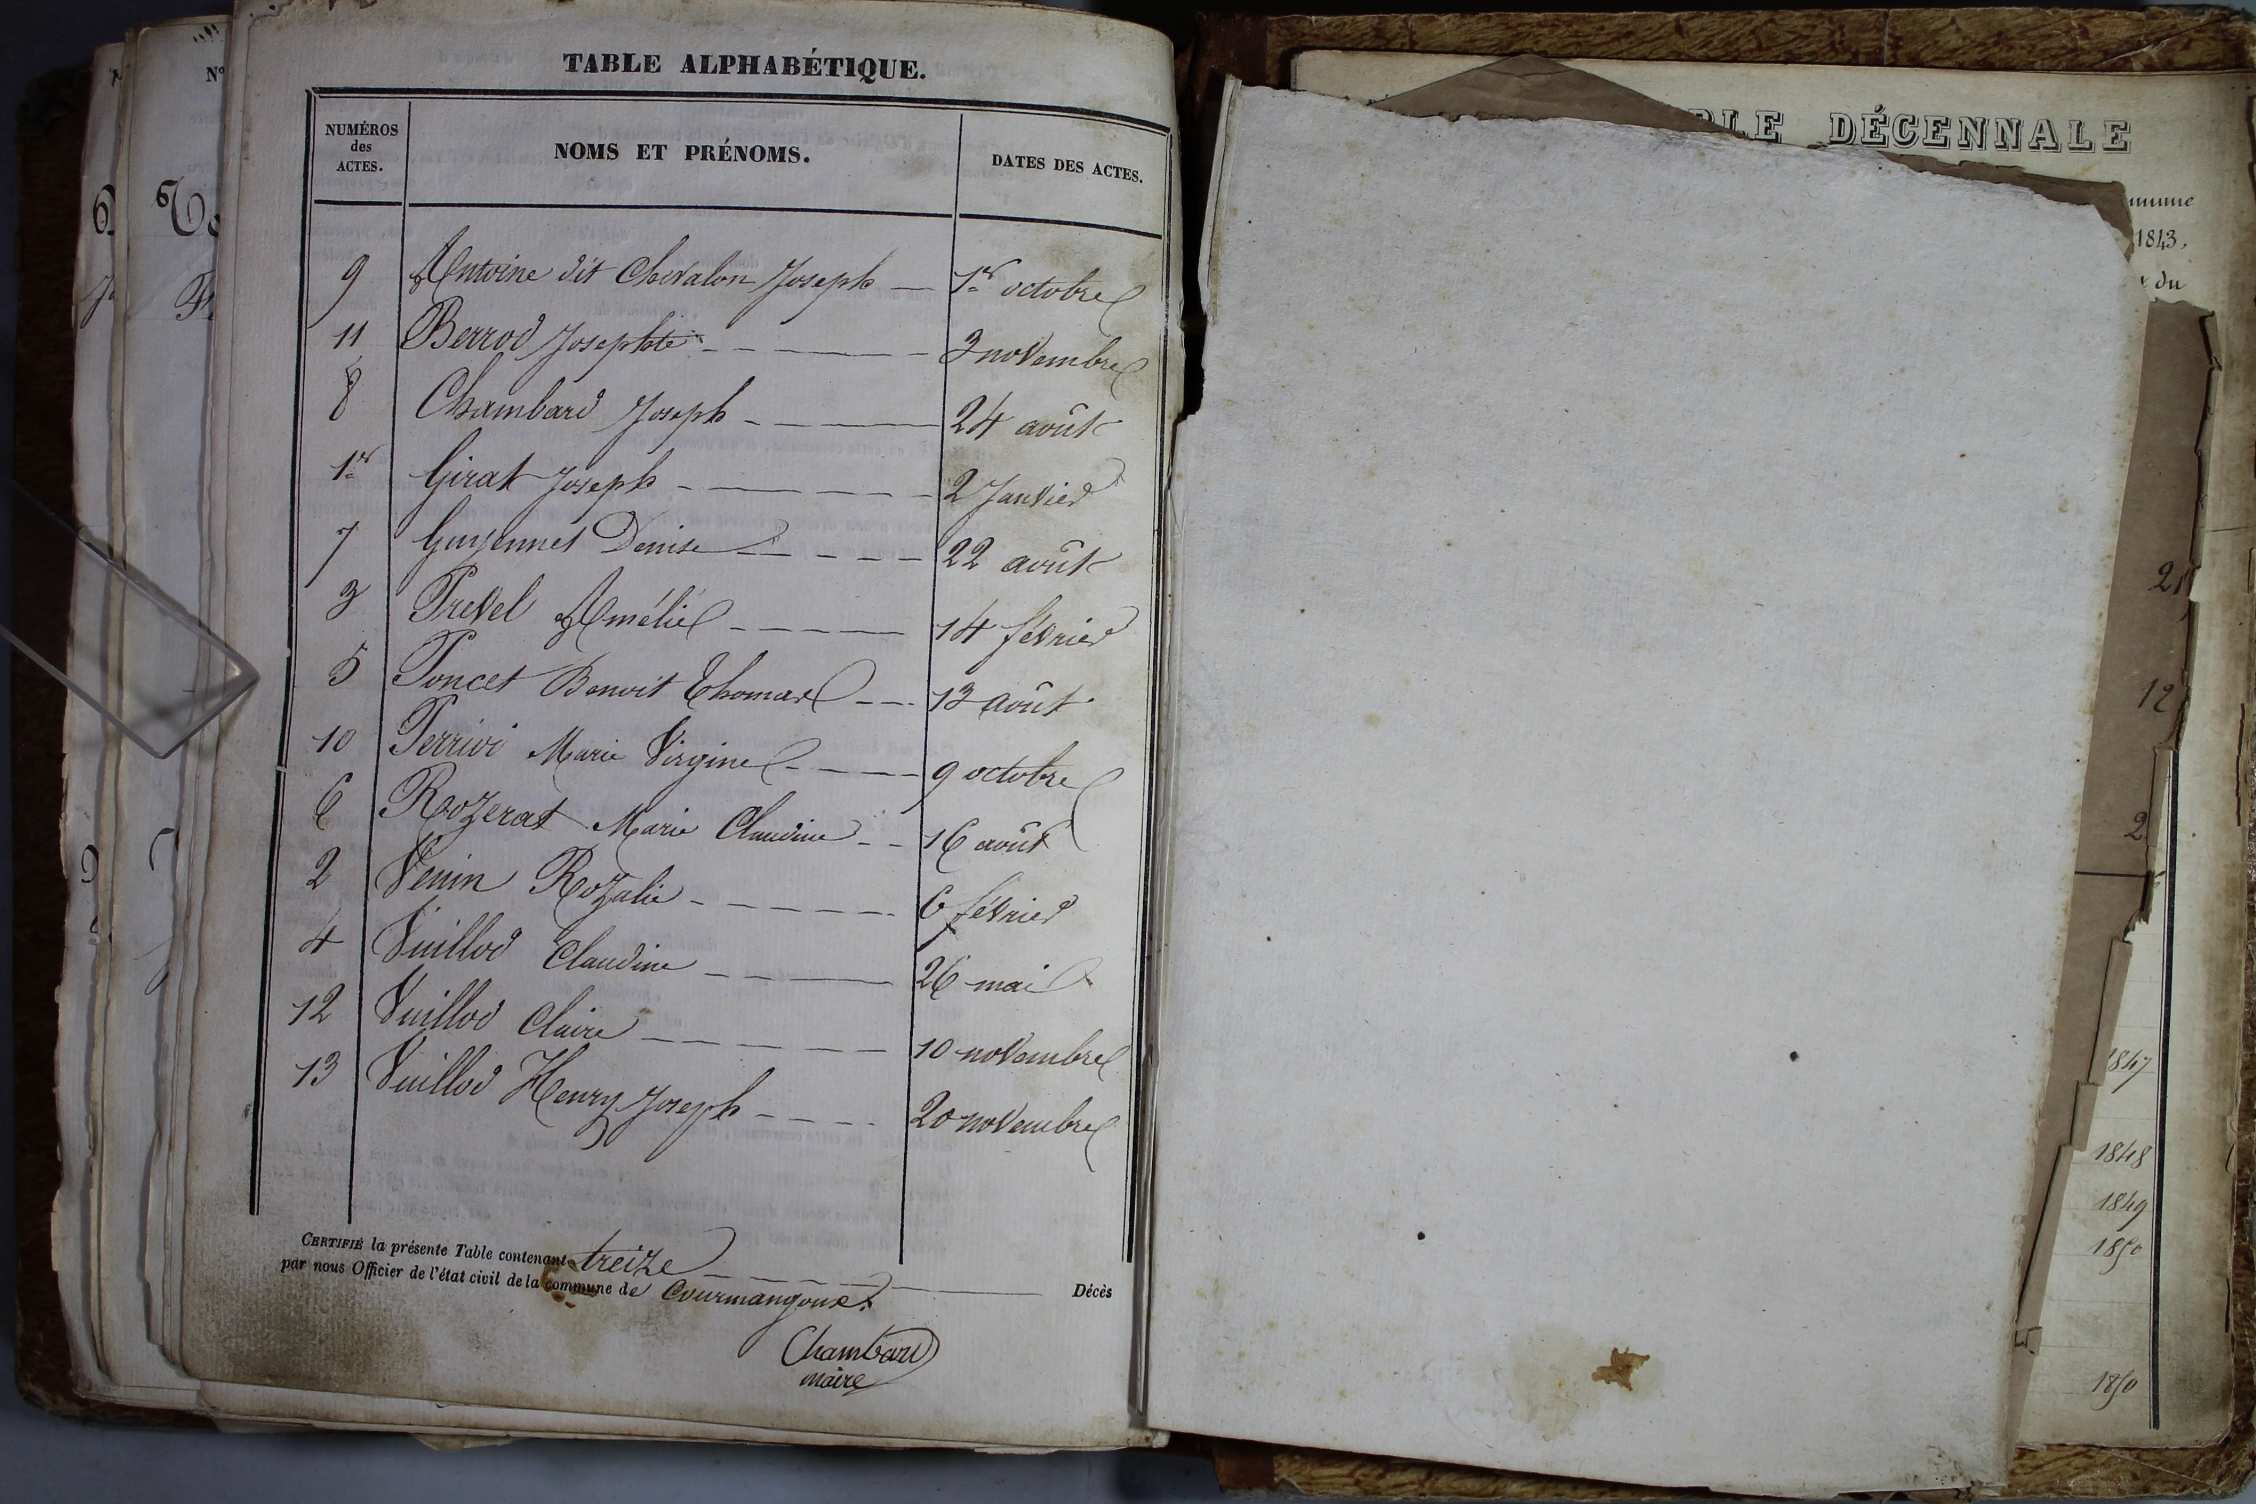 TABLE ALPHABÉTIQUE.
NUMÉROS des ACTES. NOMS ET PRÉNOMS. DATES DES ACTES.
9 Antoine dit Chevalon Joseph 1er octobre
11 Berrod Josephte 3 novembre
8 Chambard Joseph 24 août
1er Girat Joseph 2 Janvier
7 Guyennet Denise 22 août
3 Prevel Amélie 14 février
5 Poncet Benoit Thomas 13 août
10 Perrivi Marie Virgine 9 octobre
6 Rozerat Marie Claudine 16 août
2 Venin Rozalie 6 février
4 Vuillod Claudine 26 mai
12 Vuillod Claire 10 novembre
13 Vuillod Henry Joseph 20 novembre
CERTIFIÉ la présente Table contenant treize Décès
par nous Officier de l'état civil de la commune de Courmangoux.
Chambard
maire
DÉCENNALE
1843,
du
12
2
1847
1848
1849
1850
1850